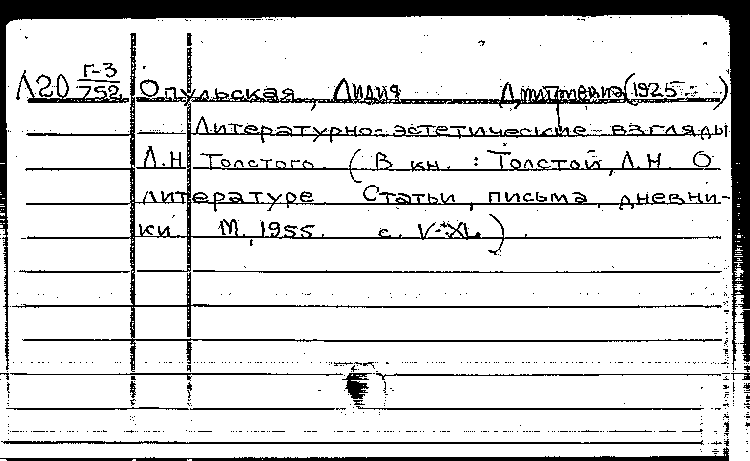 Л20 Г-3/752 Опульская, Лидия Дмитриевна (1925- )
Литературно-эстетические взгляды
Л.Н. Толстого. (В кн.: Толстой, Л.Н. О
литературе. Статьи, письма, дневни-
ки. М., 1955. с. V-XL.)